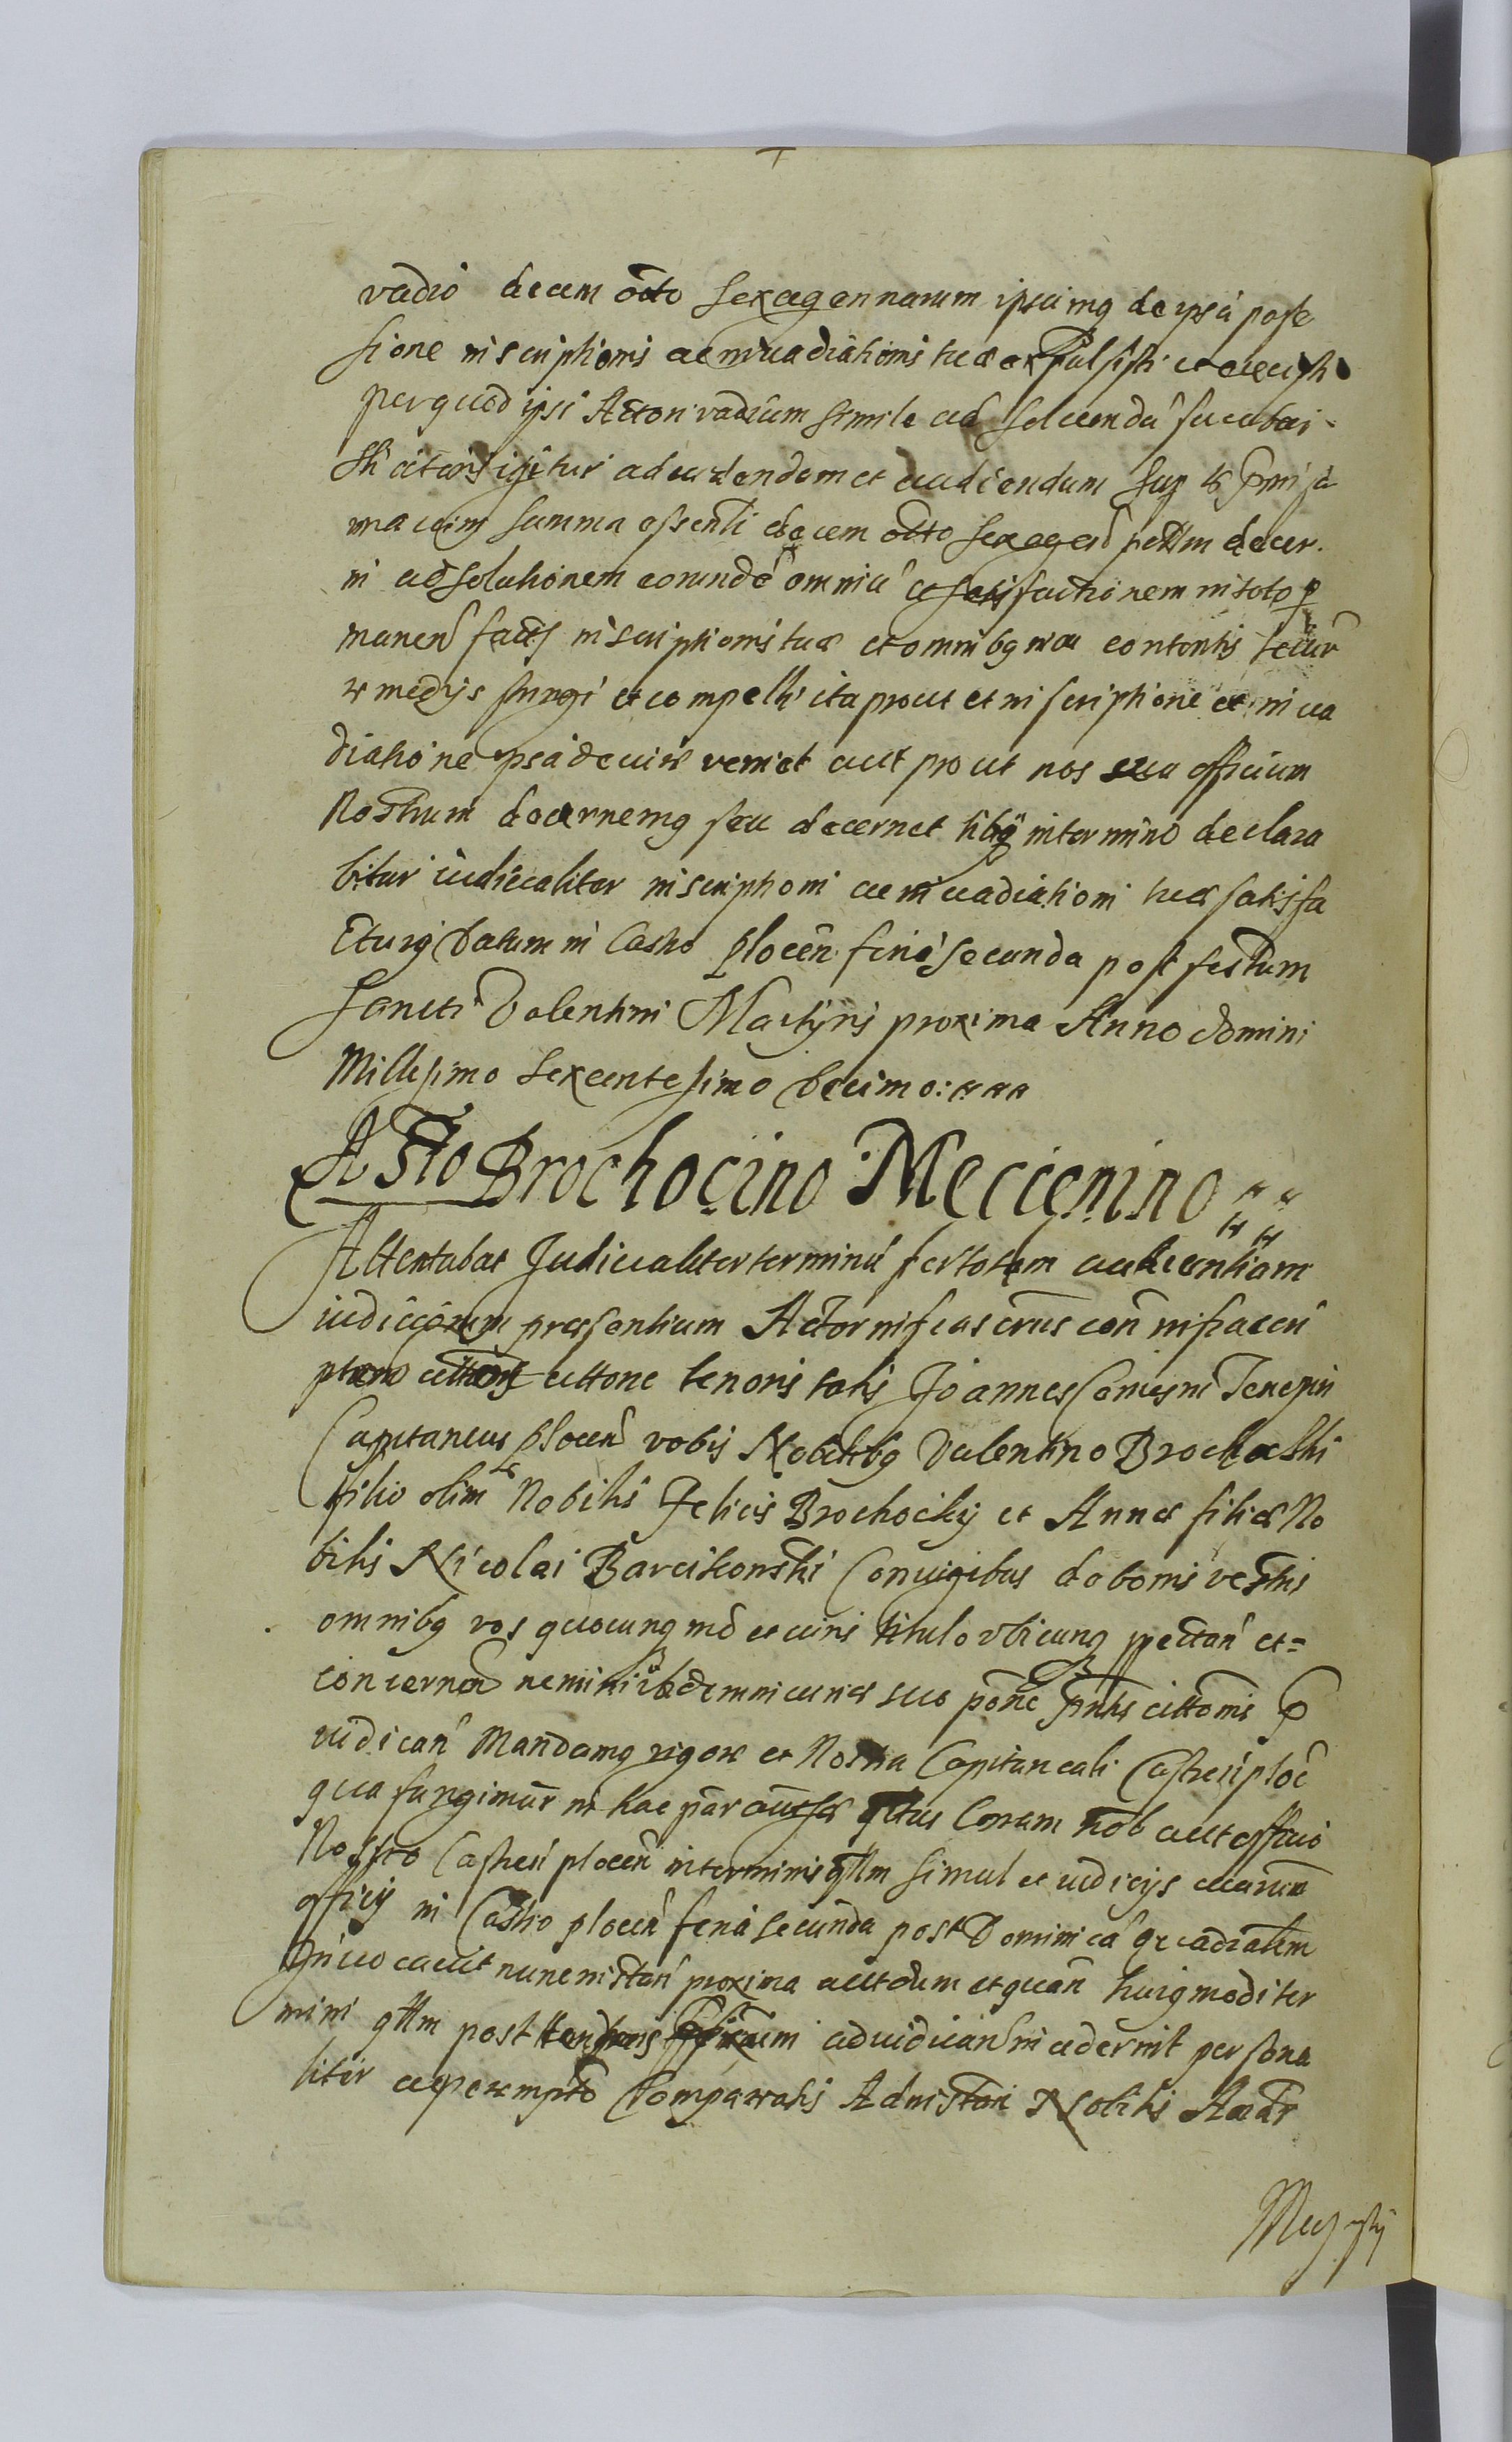 vadio decem octo sexagennarum ipsumq de ipsa posse
sione inscriptionis ac invadiationis tuae expulsisti et eiecisti
per quod ipsi Actori vadium simile ad soluendũ succubui
sti citaris igitur ad videndum et audiendum sup his pmissa
una cum summa essentli decem octo sexagen pettm decer
ni ad solutionem eorundẽ omniũ et satisfactionem in toto p
manen facti inscriptionis tuae et omnibq in ea contentis secur
remedijs fungi et compelli ita prout et inscriptione et inua
diatione ipsa de iure veniet aut prout nos seu officium
Nostrum decernemq seu decernet tibiq in termino declara
bitur iudicialiter inscriptioni ac invadiationi tuae satisfa
cturq Datum in Castro plocen feria secunda post festum
Sancti Valentini Martyris proxima Anno Domini
Millesimo Sexcentesimo Decimo:
A Sto Brochocino Meccienino
Attentabat Judicialiter terminũ per totam audientiam
iudiciorum praesentium Actor infrascrus con infracen
ptam cittone tenoris talis Joannes Comes in Tenczin
Capitaneus plocen vobis Nobilibq Valentino Brochocski
filio olim Nobilis Felicis Brochocky et Annae filiae No
bilis Nicolai Barcikowski Coniugibus de bonis vestris
omnibq vos quocunq md et iuris titulo vbicunq spectan et=
concernen nemini suo pone pntis cittonis p
iudican Mandamq rigore et Nostra Capitaneali Castren ploc
qua fungimur in hac par quatus Coram nob aut officio
Nostro Castren plocen in terminis qttm simul et iudicijs
officij in Castro plocen feria secunda post Dominicã quadragalem
Inuocauit nunc instan proxima aut dum et quan huiqmodi ter
mini qttm post ad iudican inciderint persona
liter ac peremptoe Compareatis Ad instan Nobilis